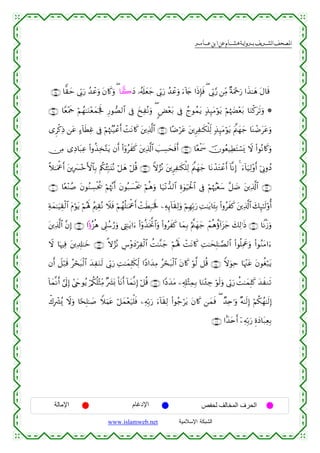 المصحف الشريف برواية هشام عن ابن عامر
قَالَ هَٰذَا رَحْمَةٌ مِّن رَّبِّى ۖ فَإِذَا جَآءَ وَعْدُ رَبِّى جَعَلَهُۥ دَكًّا ۖ وَكَانَ وَعْدُ رَبِّى حَقًّا
وَتَرَكْنَا بَعْضَهُمْ يَوْمَئِذٍ يَمُوجُ فِى بَعْضٍ ۖ وَنُفِخَ فِى ٱلصُّورِ فَجَمَعْنَٰهُمْ جَمْعًا
وَعَرَضْنَا جَهَنَّمَ يَوْمَئِذٍ لِّلْكَٰفِرِينَ عَرْضًا ٱلَّذِينَ كَانَتْ أَعْيُنُهُمْ فِى غِطَآءٍ عَن ذِكْرِى
وَكَانُوا۟ لَا يَسْتَطِيعُونَ سَمْعًا أَفَحَسِبَ ٱلَّذِينَ كَفَرُوٓا۟ أَن يَتَّخِذُوا۟ عِبَادِى مِن
دُونِىٓ أَوْلِيَآءَ ۚ إِنَّآ أَعْتَدْنَا جَهَنَّمَ لِلْكَٰفِرِينَ نُزُلًا قُلْ هَلْ نُنَبِّئُكُم بِٱلْأَخْسَرِينَ أَعْمَٰلًا
ٱلَّذِينَ ضَلَّ سَعْيُهُمْ فِى ٱلْحَيَوٰةِ ٱلدُّنْيَا وَهُمْ يَحْسَبُونَ أَنَّهُمْ يُحْسِنُونَ صُنْعًا
أُو۟لَٰٓئِكَ ٱلَّذِينَ كَفَرُوا۟ بِـَٔايَٰتِ رَبِّهِمْ وَلِقَآئِهِۦ فَحَبِطَتْ أَعْمَٰلُهُمْ فَلَا نُقِيمُ لَهُمْ يَوْمَ ٱلْقِيَٰمَةِ
وَزْنًا ذَٰلِكَ جَزَآؤُهُمْ جَهَنَّمُ بِمَا كَفَرُوا۟ وَٱتَّخَذُوٓا۟ ءَايَٰتِى وَرُسُلِى هُزُؤًا إِنَّ ٱلَّذِينَ
ءَامَنُوا۟ وَعَمِلُوا۟ ٱلصَّٰلِحَٰتِ كَانَتْ لَهُمْ جَنَّٰتُ ٱلْفِرْدَوْسِ نُزُلًا خَٰلِدِينَ فِيهَا لَا
يَبْغُونَ عَنْهَا حِوَلًا قُل لَّوْ كَانَ ٱلْبَحْرُ مِدَادًا لِّكَلِمَٰتِ رَبِّى لَنَفِدَ ٱلْبَحْرُ قَبْلَ أَن
تَنفَدَ كَلِمَٰتُ رَبِّى وَلَوْ جِئْنَا بِمِثْلِهِۦ مَدَدًا قُلْ إِنَّمَآ أَنَا۠ بَشَرٌ مِّثْلُكُمْ يُوحَىٰٓ إِلَىَّ أَنَّمَآ
إِلَٰهُكُمْ إِلَٰهٌ وَٰحِدٌ ۖ فَمَن كَانَ يَرْجُوا۟ لِقَآءَ رَبِّهِۦ فَلْيَعْمَلْ عَمَلًا صَٰلِحًا وَلَا يُشْرِكْ
بِعِبَادَةِ رَبِّهِۦٓ أَحَدًۢا
الحرف المخالف لحفص الإدغام الإمالة
الشبكة الإسلامية www.islamweb.net